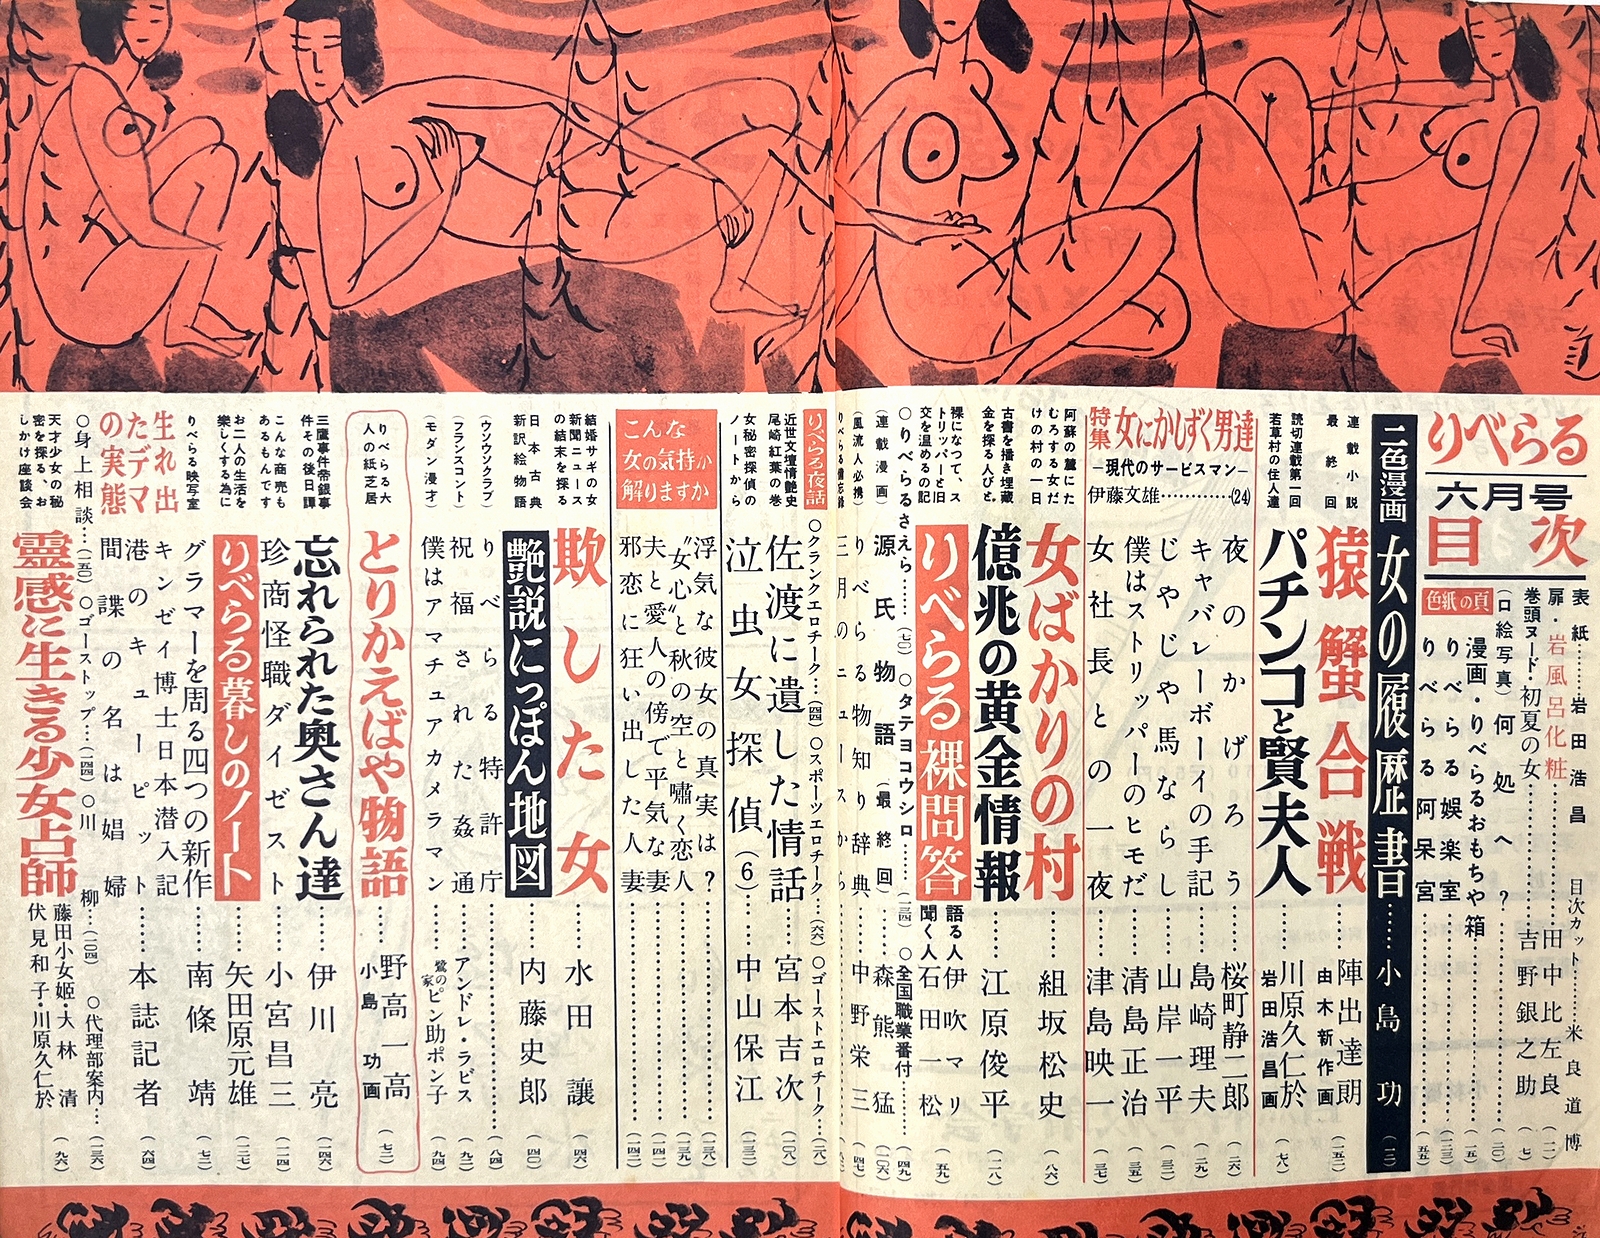 りべらる
六月号
目次
表紙………岩田浩昌
目次カット………米良道博
扉・岩風呂化粧………田中比左良(一)
巻頭ヌード・初夏の女………吉野銀之助(七)
(口絵写真)何処へ?………(二〇)
色紙の頁
漫画・りべらるおもちゃ箱………(一五)
りべらる娯楽室………(一二三)
りべらる阿呆宮………(五五)
二色漫画 女の履歴書………小島功(一二)
連載小説
最終回
猿蟹合戦………陣出達朗
由木新作画(一五二)
読切連載第一回
若草村の住人達
パチンコと賢夫人………川原久仁於
岩田浩昌画(七八)
特集 女にかしずく男達
―現代のサービスマン―
伊藤文雄………(24)
夜のかげろう………桜町静二郎(二六)
キャバレーボーイの手記………島崎理夫(二九)
じゃやじゃや馬ならし………山岸一平(三三)
僕はストリッパーのヒモだ………清島正治(三五)
女社長との一夜………津島映一(三七)
阿蘇の麓にた
むろする女だ
けの村の一日
女ばかりの村………組坂松史(八六)
古書を播き埋蔵
金を探る人びと
億兆の黄金情報………江原俊平(一一八)
裸になって、ス
トリッパーと旧
交を温めるの記
りべらる裸問答
語る人 伊吹マリ
聞く人 石田一松(五九)
○りべらるさえら……(七〇) ○タテヨコウシロ……(一三四) ○全国職業番付……(四九)
(連載漫画)
源氏物語(最終回)………森熊猛(一〇六)
(風流人必携)
りべらる物知り辞典………中野栄三(四七)
りべらる夜話
○クランクエロチーク…(四四) ○スポーツエロチーク…(六六) ○ゴーストエロチーク…(二八)
近世文壇情艶史
尾崎紅葉の巻
佐渡に遺した情話………宮本吉次(一〇八)
女秘密探偵の
ノートから
泣虫女探偵(6)………中山保江(一三二)
こんな
女の気持が
解りますか
浮気な彼女の真実は?………(一三八)
〝女心〟と秋の空と嘯く恋人………(一三九)
夫と愛人の傍で平気な妻………(一四一)
邪恋に狂い出した人妻………(一四二)
結婚サギの女
新聞ニュース
の結末を探る
欺した女………水田讓(四六)
日本古典
新訳絵物語
艶説にっぽん地図………内藤史郎(四〇)
(ウソウソクラブ)
りべらる特許庁………(八四)
(フランスコント)
祝福された姦通………アンドレ・ラビス(九二)
(モダン漫才)
僕はアマチュアカメラマン………鷺のピン助
の家ポン子(九四)
りべらる六
人の紙芝居
とりかえばや物語………野高一高
小島功画(七二)
三鷹事件帝銀事
件その後日日譚
忘れられた奥さん達………伊川亮(一四六)
こんな商売も
あるもんです
珍商怪職ダイゼスト………小宮昌三(一一四)
お二人の生活を
樂しくする為に
りべらる暮しのノート………矢田原元雄(一二七)
りべらる映写室
グラマーを周る四つの新作………南條靖(七二)
生れ出
たデマ
の実態
キンゼイ博士日本潜入記
港のキューピット
間諜の名は娼婦………本誌記者(六四)
○身上相談……(一五〇) ○ゴーストップ……(一四四) ○川柳…(一〇四) ○代理部案内…(一三六)
天才少女の秘
密を探る、お
しかけ座談会
靈感に生きる少女占師
藤田小女姫・大林清
伏見和子・川原久仁於(九六)